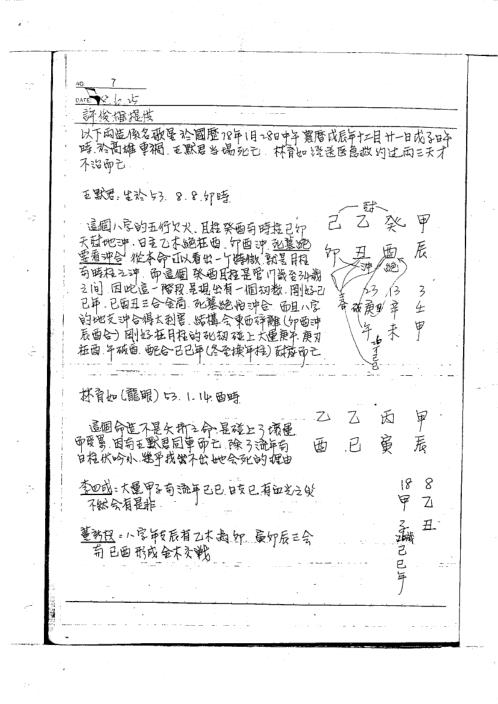 NO. 7
DATE 8.1.25
許俊雄提供
以下兩造係名礅是於國歷78年1月28日中午實曆戊辰年十二月廿一日戊子日午
時於高雄車禍 王默君當場死亡 林育如經送医急救約过兩三天才
不治而亡
王默君:生於53. 8. 8. 卯時
這個八字的五行欠火 月柱癸酉与時柱己卯
天尅地沖 日主乙木絕在酉 卯酉沖 死墓絕
要看沖合 從本命可以看出一个特徵 就是月柱
与時柱之沖 而這個癸酉月柱是管
之間 因此這一階段是現出有一個劫數 剛好己
己年 己酉丑三合金局 死墓絕怕沖合 而且八字
的地支沖合得太利害 結構会東西祥離(卯酉沖
辰酉合) 剛好在月柱的死劫 碰上大運庚午 庚刃
在酉 午破酉 配合己巳年(冬至換年柱)尅度而亡
己 乙 癸 甲
卯 丑 酉 辰
沖 絕
23 13 3
庚 辛 壬
午 未 申
己巳
林育如(龍眼) 53. 1. 14. 酉時
這個命造不是夭折之命 是碰上了壞運
而受累 因与王默君同車而亡 除了流年与
日柱伏吟外 幾乎找出不出她会死的理由
乙 乙 丙 甲
酉 巳 寅 辰
李四成:大運甲子与流年己巳 日支巳 有血光之災
不然会有是非
18 8
甲 乙
子 丑
己巳年
八字年支辰有乙木為卯 寅卯辰三会
与巳酉形成金木交戰